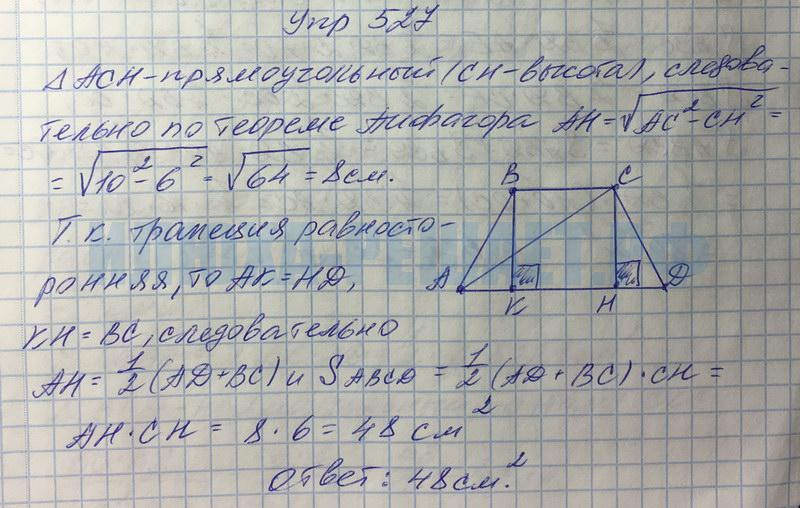 Упр 527
Δ ACH - прямоугольный (CH - высота), следова-
тельно по теореме Пифагора AH = √AC² - CH² =
= √10² - 6² = √64 = 8 см.
Т. к. трапеция равносто-
ронняя, то AK = HD,
KH = BC, следовательно
AH = 1/2 (AD + BC) и S ABCD = 1/2 (AD + BC) · CH =
AH · CH = 8 · 6 = 48 см²
Ответ: 48 см.²
B C
A K H D